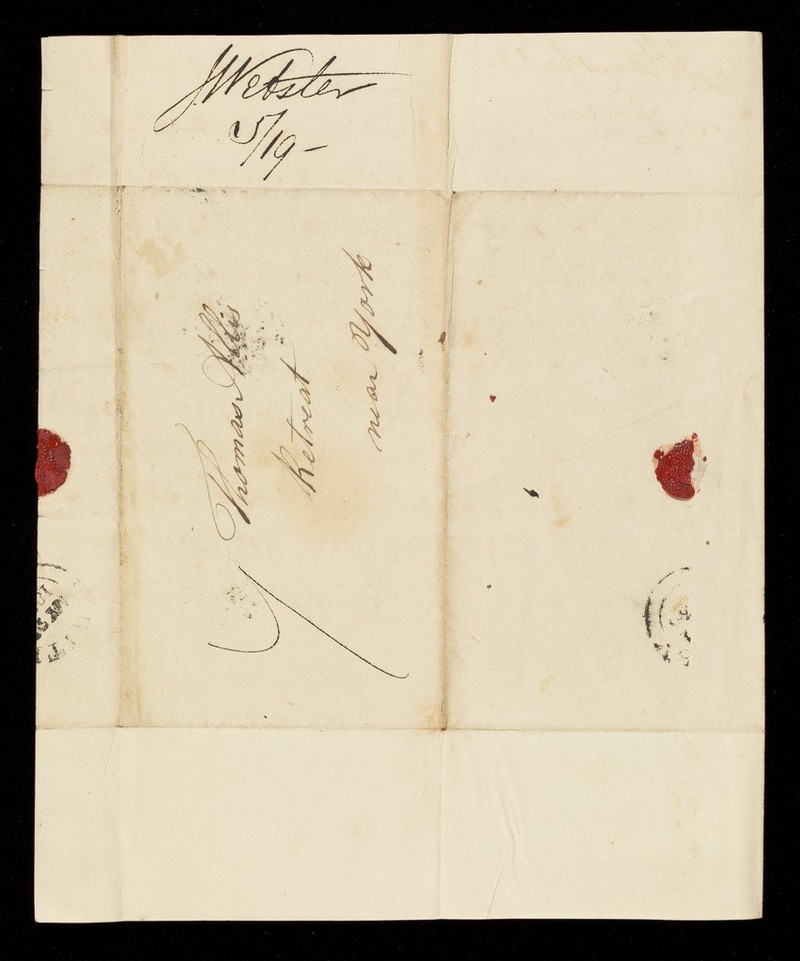 J Webster
5/19-
Thomas Allis
Retreat
near York